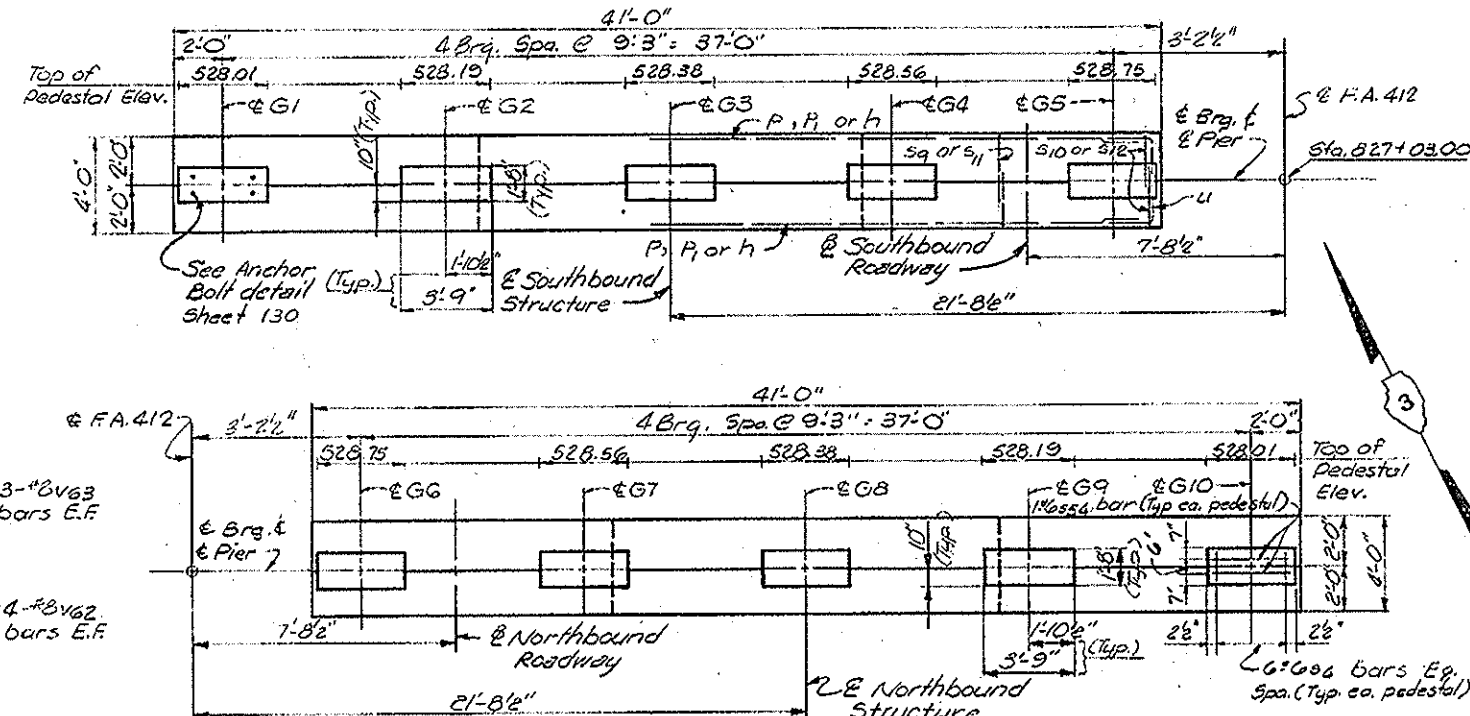 41'-0"
2'-0"
4 Brg. Spa. @ 9'-3" = 37'-0"
3'-2½"
Top of
Pedestal Elev.
528.01
528.19
528.38
528.56
528.75
℄ G1
℄ G2
℄ G3
℄ G4
℄ G5
℄ F.A. 412
P, P₁ or h
℄ Brg. &
℄ Pier
10" (Typ.)
s9 or s11
s10 or s12
Sta. 827+03.00
4'-0"
2'-0"
2'-0"
1'-8"
(Typ.)
u
P, P₁ or h
℄ Southbound
Roadway
7'-8½"
See Anchor
Bolt detail
Sheet 130
(Typ.)
1'-10½"
3'-9"
℄ Southbound
Structure
21'-8½"
3
41'-0"
℄ F.A. 412
3'-2½"
4 Brg. Spa. @ 9'-3" = 37'-0"
2'-0"
528.75
528.56
528.38
528.19
528.01
Top of
Pedestal
Elev.
3-#8v63
bars E.F.
℄ G6
℄ G7
℄ G8
℄ G9
℄ G10
bar (Typ ea. pedestal)
℄ Brg. &
℄ Pier
10"
(Typ.)
1'-8"
(Typ.)
7"
6"
7"
2'-0"
2'-0"
4'-0"
4-#8v62
bars E.F.
7'-8½"
℄ Northbound
Roadway
1'-10½"
3'-9"
(Typ.)
2½"
2½"
bars Eq.
Spa. (Typ. ea. pedestal)
21'-8½"
℄ Northbound
Structure